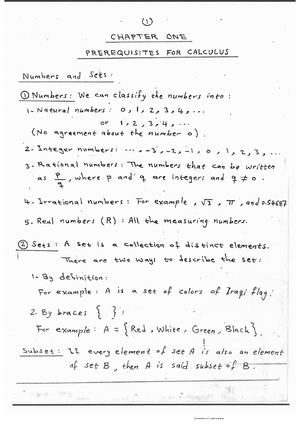 (1)
CHAPTER ONE
PREREQUISITES FOR CALCULUS
Numbers and Sets:
① Numbers: We can classify the numbers into:
1- Natural numbers: 0, 1, 2, 3, 4, ...
or 1, 2, 3, 4, ...
(No agreement about the number 0).
2. Integer numbers: ... -3, -2, -1, 0, 1, 2, 3, ...
3. Rational numbers: The numbers that can be written
as p/q, where p and q are integers and q ≠ 0.
4. Irrational numbers: For example, √3, π, and
5. Real numbers (R): All the measuring numbers.
② Sets: A set is a collection of distinct elements.
There are two ways to describe the set:
1- By definition:
For example: A is a set of colors of Iraqi flag.
2. By braces { }:
For example: A = {Red, White, Green, Black}.
Subset: If every element of set A is also an element
of set B, then A is said subset of B.